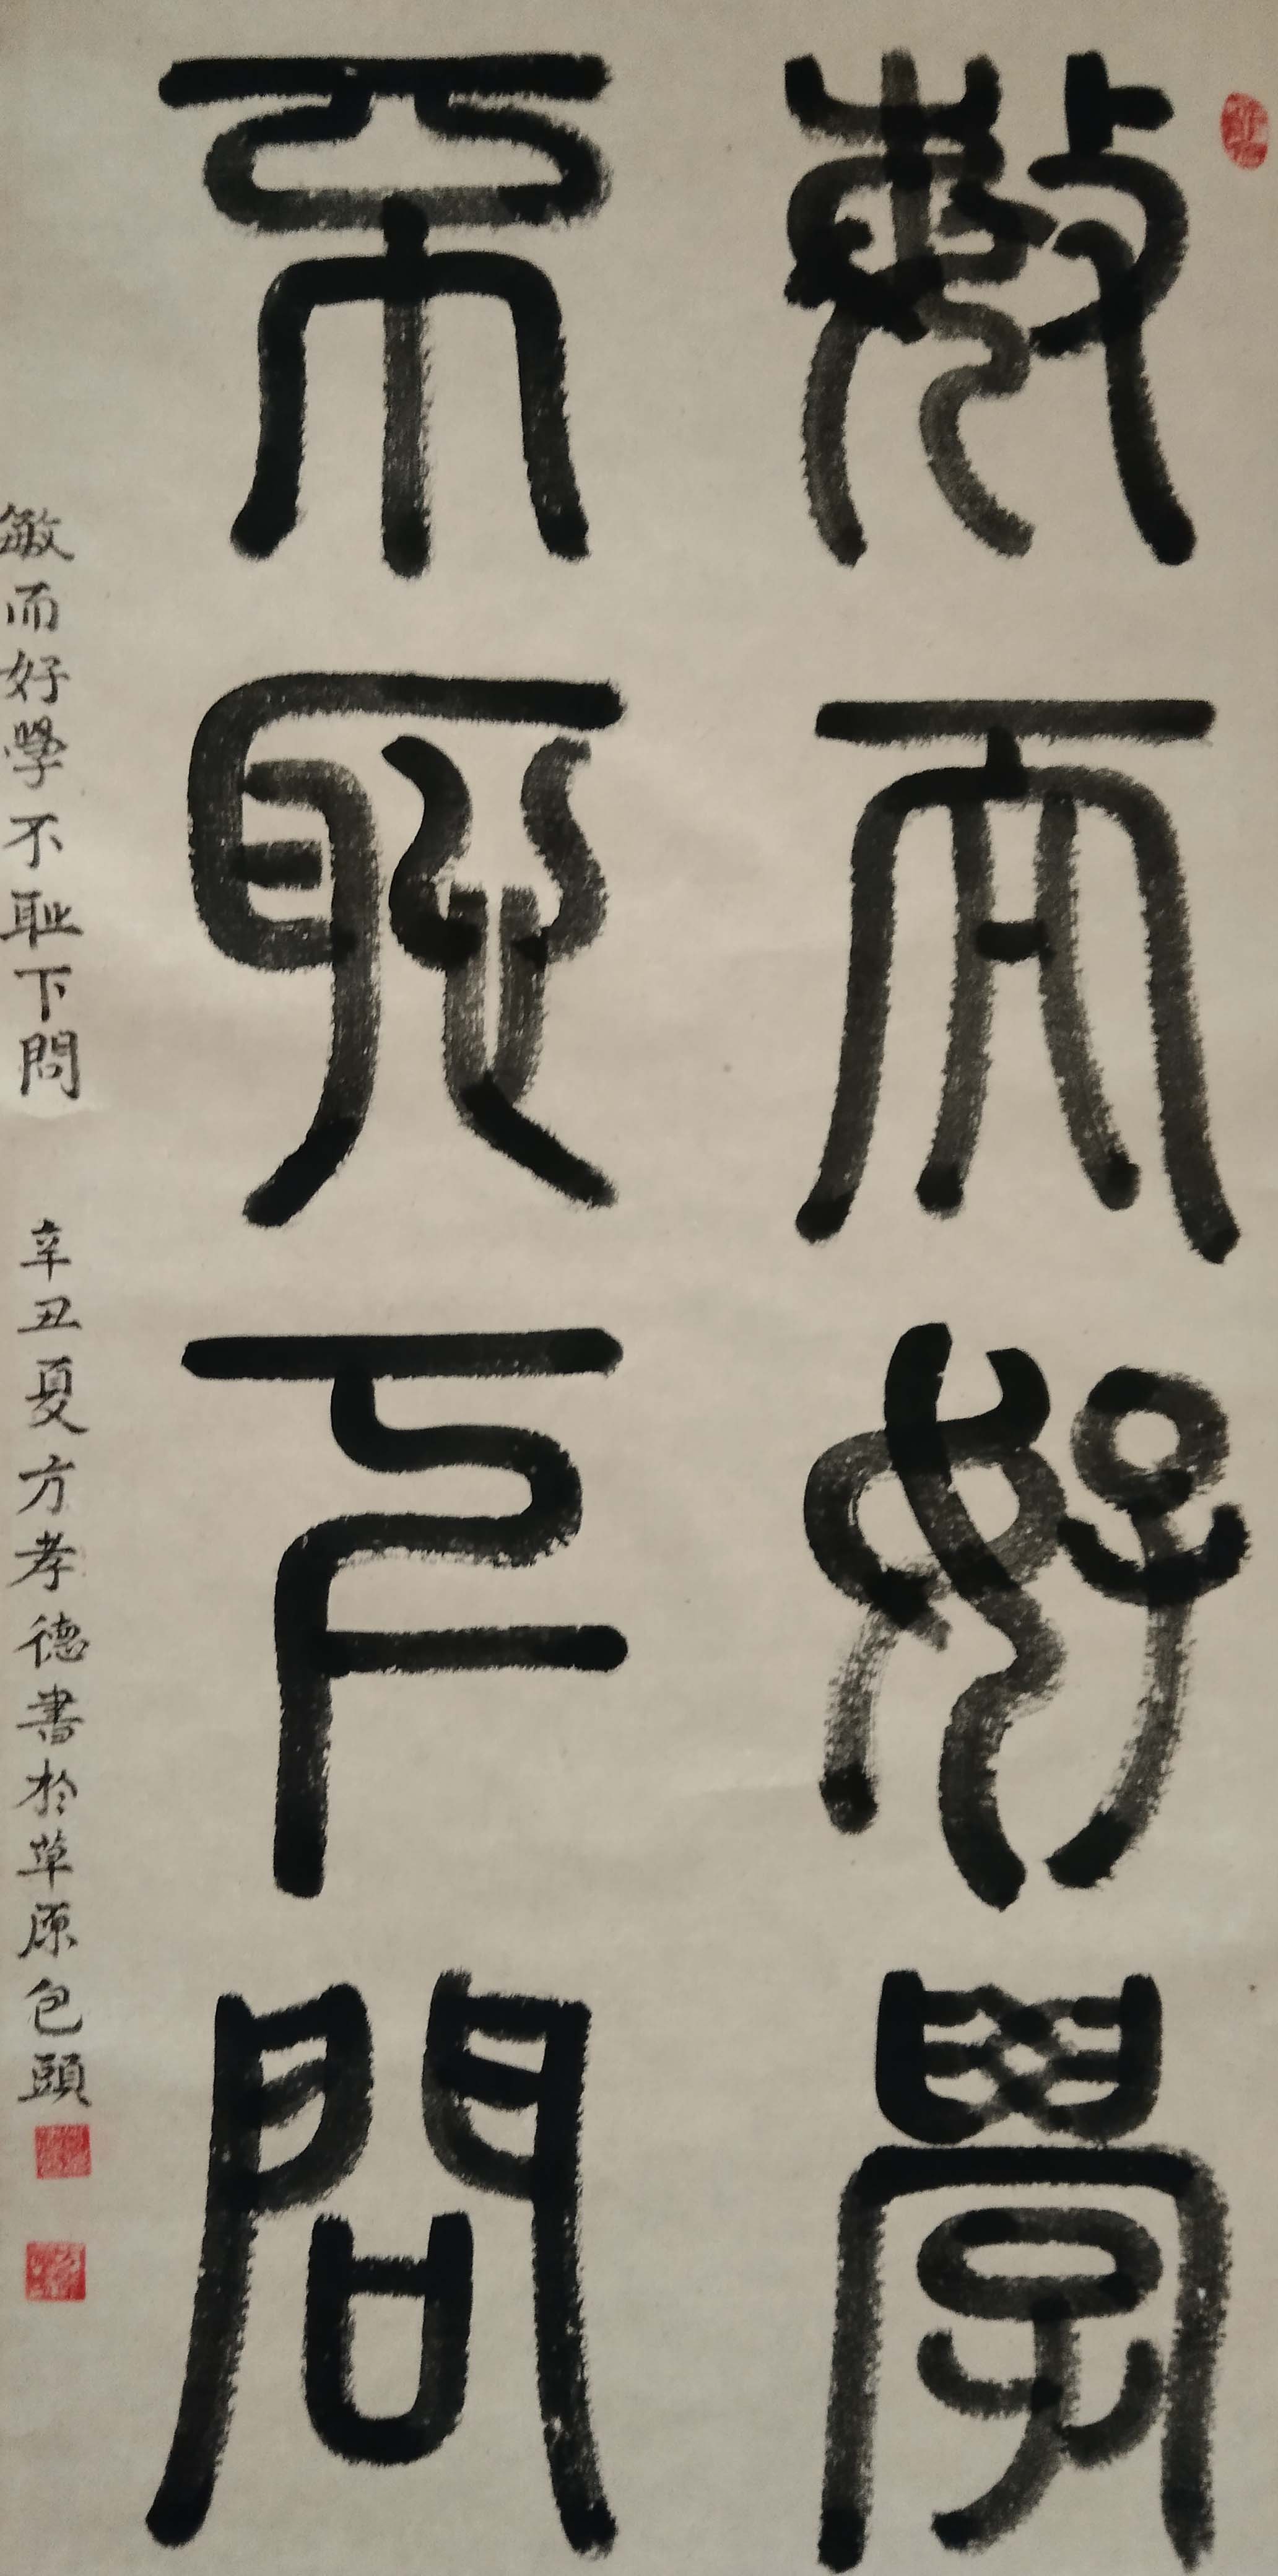 敏而好學
不恥下問
敏而好學不耻下問 辛丑夏方孝德書於草原包頭